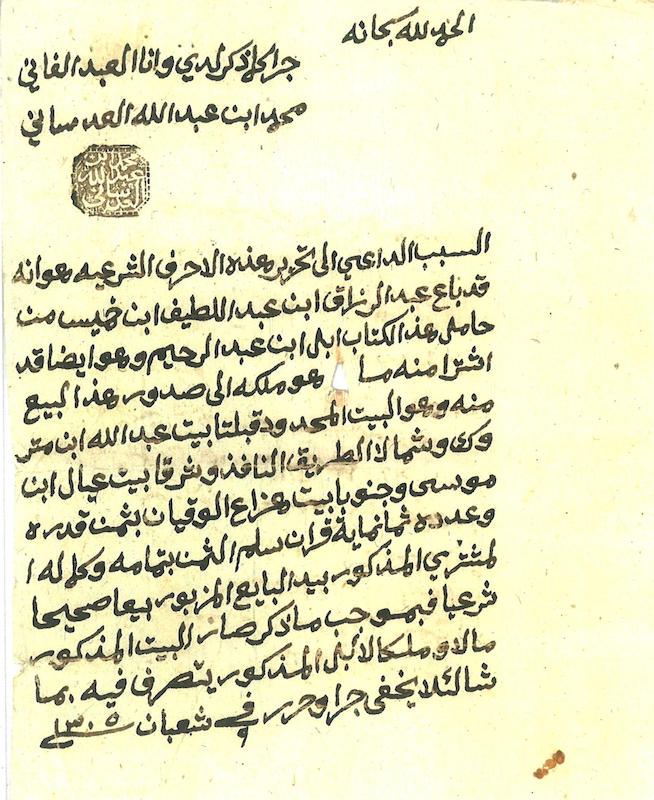 الحمد لله سبحانه
جرا كلما ذكر لدي وانا العبد الفاني
محمد ابن عبد الله العدساني
السبب الداعي الى تحرير هذه الاحرف الشرعيه هو انه
قد باع عبد الرزاق ابن عبد اللطيف ابن خميس من
حامل هذ الكتاب ابل ابن عبد الرحيم وهو ايضا قد
اشترا منه ما هو ملكه الى صدور هذ البيع
منه وهو البيت المحدود قبلتا بيت عبد الله ابن متر
وك وشمالا الطريق النافذ وشرقا بيت عيال ابن
موسى وجنوبا بيت هزاع الوقيان بثمن قدره
وعدده ثمانماية قران سلم الثمن بتمامه وكماله ا
لمشتري المذكور بيد البايع المزبور بيعا صحيحا
شرعيا فبموجب ما ذكر صار البيت المذكور
مالا وملكا لابل المذكور يتصرف فيه بما
شا لئلا يخفى جرا وحرر في شعبان ١٣٠٥